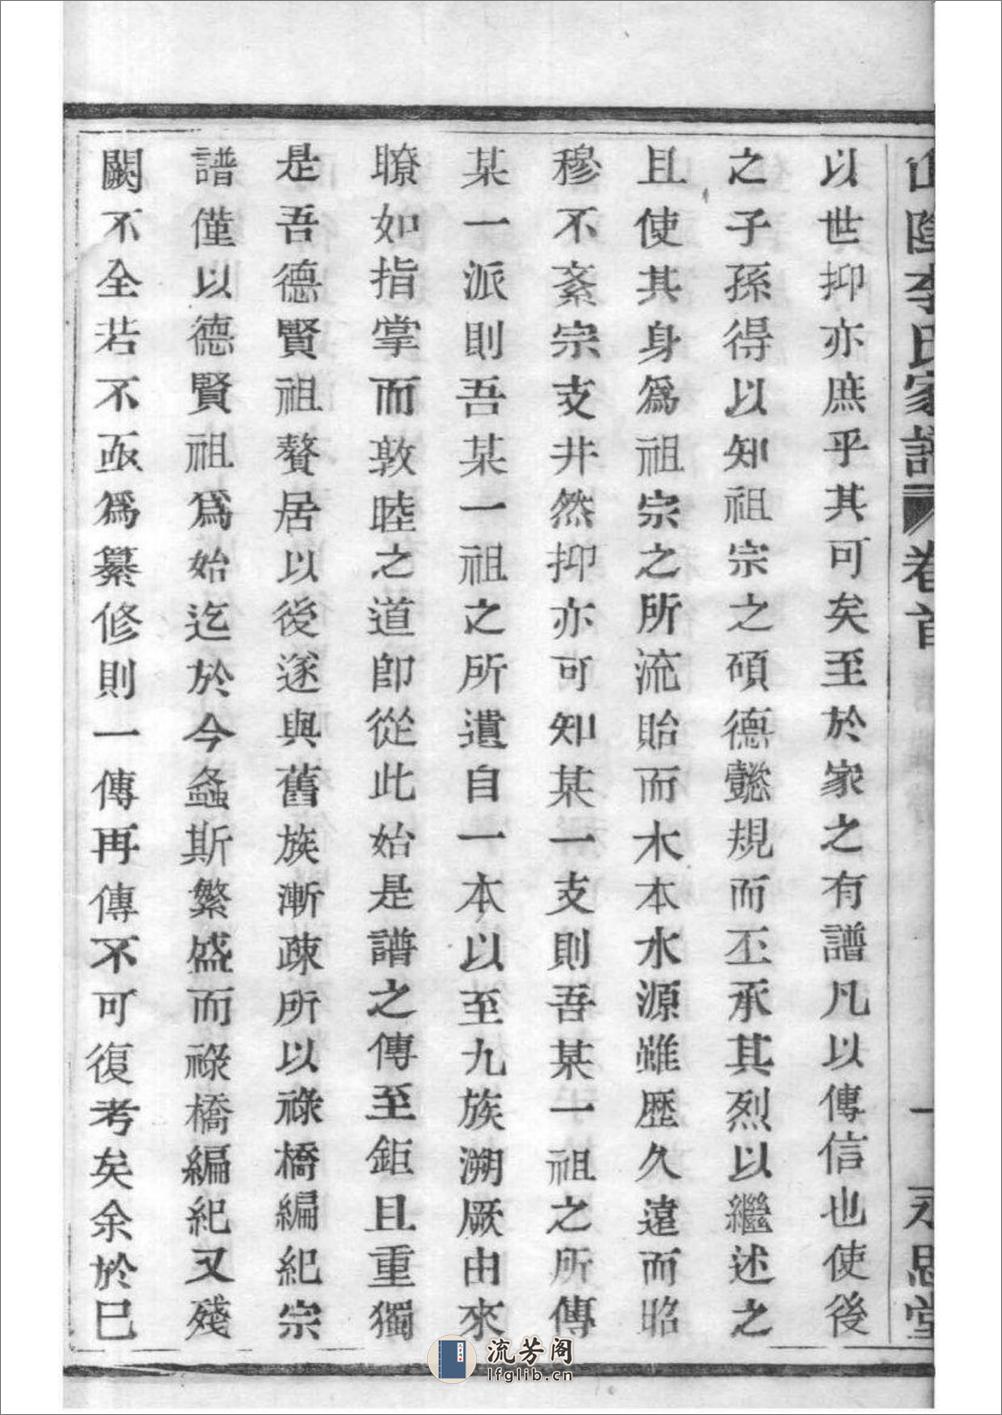 山陰李氏家譜 卷首 一 永思堂
以世抑亦庶乎其可矣至於家之有譜凡以傳信也使後
之子孫得以知祖宗之碩德懿規而丕承其烈以繼述之
且使其身爲祖宗之所流貽而木本水源雖歷久遠而昭
穆不紊宗支井然抑亦可知某一支則吾某一祖之所傳
某一派則吾某一祖之所遺自一本以至九族溯厥由來
瞭如指掌而敦睦之道卽從此始是譜之傳至鉅且重獨
是吾德賢祖贅居以後遂與舊族漸疎所以祿橋編紀宗
譜僅以德賢祖爲始迄於今螽斯繁盛而祿橋編紀又殘
闕不全若不亟爲纂修則一傳再傳不可復考矣余於巳
流芳阁
lfglib.cn